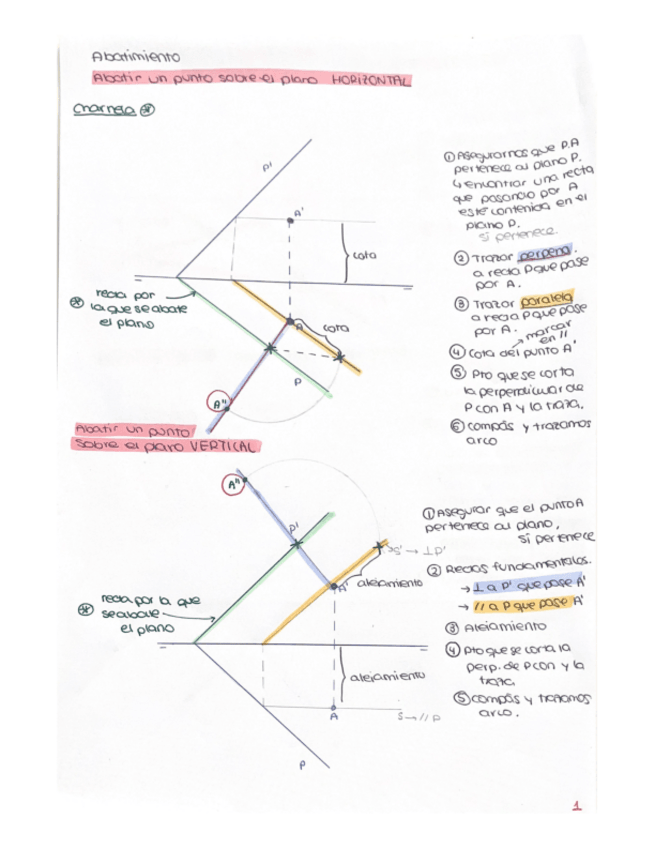 Abatimiento
Abatir un punto sobre el plano HORIZONTAL
Charnela *
P'
A'
cota
* recta por
la que se abate
el plano
A
cota
P
A''
① Asegurarnos que P.A
pertenece al plano P.
↳ encontrar una recta
que pasando por A
esté contenida en el
plano P.
si pertenece.
② Trazar perpend.
a recta P que pase
por A.
③ Trazar paralela
a recta P que pase
por A.
→ marcar
en //
④ Cota del punto A'
⑤ Pto que se corta
la perpendicular de
P con A y la traza.
⑥ compás y trazamos
arco
Abatir un punto
sobre el plano VERTICAL
A''
P'
→ ⊥ P'
A'
alejamiento
* recta por la que
se abate
el plano
alejamiento
A
S → // P
P
① Asegurar que el punto A
pertenece al plano,
si pertenece
② Rectas fundamentales.
→ ⊥ a P' que pase A'
→ // a P que pase A'
③ Alejamiento
④ pto que se corta la
perp. de P con y la
traza
⑤ compás y trazamos
arco.
1